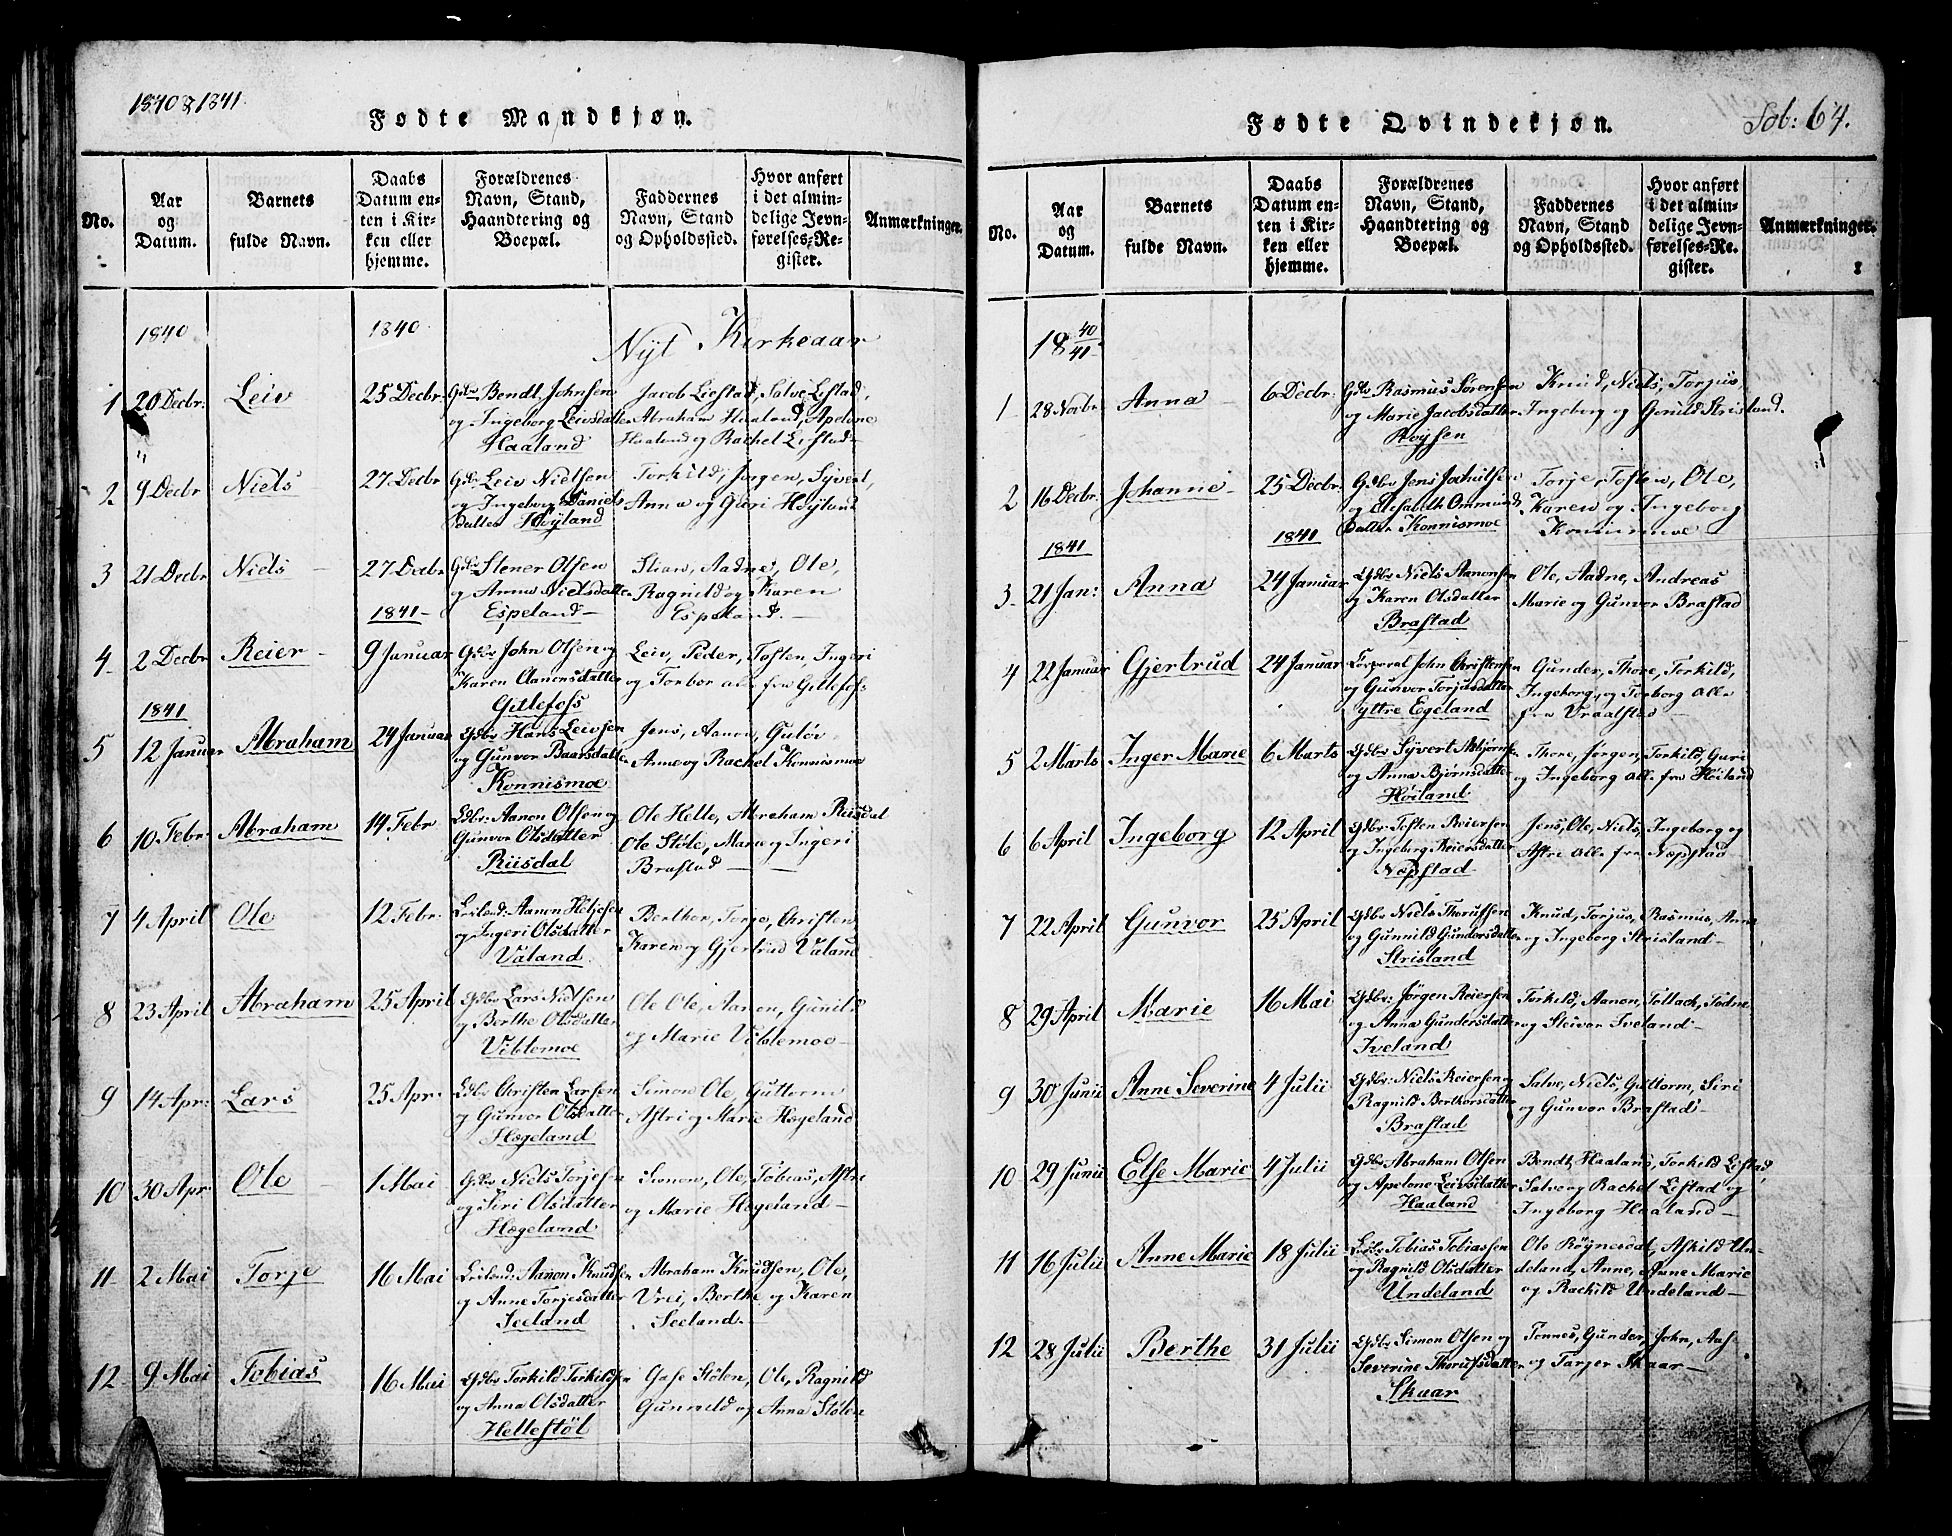 1840 & 1841.
Fødte Mandkjøn.
No.
Aar
og
Datum.
Barnets
fulde Navn.
Daabs
Datum en-
ten i Kir-
ken eller
hjemme.
Forældrenes
Navn, Stand,
Haandtering og
Boepæl.
Faddernes
Navn, Stand
og Opholdssted.
Hvor anført
i det almin-
delige Jevn-
førelses-Re-
gister.
Anmærkninger.
1840
1840
Nyt Kirkeaar
1 20 Decbr: Leiv 25 Decbr: Gdbr Bendt Johnsen Jacob Liestad, Salve Lestad,
og Ingeborg Leivsdatter Abraham Haaland, Apelone
Haaland Haaland og Rachel Liestad
2 9 Decbr Niels 27 Decbr Gdbr Leiv Nielsen Torkild, Jørgen, Syvert,
og Ingeborg Daniels Anna og Guri Høyland
datter Høyland
3 21 Decbr Niels 27 Decbr Gdbr Stener Olsen Stian, Aadne, Ole,
og Anna Nielsdatter Ragnild og Karen
1841 Espeland Espeland.
4 2 Decbr Reier 9 Januar Gdbr John Olsen og Leiv, Peder, Tosten, Ingeri
Karen Aanonsdatter og Torbor alle fra Gillefoss
1841 Gillefoss
5 12 Januar Abraham 24 Januar Gdbr Hans Leivsen Jens, Aanon, Guløv
og Gunvor Baarsdatter Anne og Rachel Konnismoe
Konnismoe
6 10 Febr: Abraham 14 Febr Gdbr: Aanon Olsen og Ole Helle, Abraham Riisdal
Gunvor Olsdatter Ole Støle, Marie og Ingeri
Riisdal Brastad
7 4 April Ole 12 Febr: Leilend: Aanon Heljesen Berthor, Torje, Christen,
og Ingeri Olsdatter Karen og Gjertrud Valand
Valand
8 23 April Abraham 25 April Gdbr Lars Nielsen Ole Ole, Aanon, Gunild
og Berthe Olsdatter og Marie Viblemoe
Viblemoe
9 14 Apr: Lars 25 Apr. Gdbr Christen Larsen Simon Ole, Guttorm
og Gunvor Olsdatter Astri og Marie Hægeland
Hægeland
10 30 Apr: Ole 1 Mai Gdbr Niels Torjesen Simon, Ole, Tobias, Astri
og Siri Olsdatter og Marie Hægeland
Hægeland
11 2 Mai Torje 16 Mai Leilend: Aanon Knudsen Abraham Knudsen, Ole,
og Anne Torjesdatter Vrei, Berthe og Karen
Seeland Seeland.
12 9 Mai Tobias 16 Mai Gdbr Torkild Torkildsen Støten, Ole, Ragnild
og Anna Olsdatter Gunnild og Anna Stølen
Hellestøl
Fødte Qvindekjøn.
Fol: 64.
No.
Aar
og
Datum.
Barnets
fulde Navn.
Daabs
Datum en-
ten i Kir-
ken eller
hjemme.
Forældrenes
Navn, Stand,
Haandtering og
Boepæl.
Faddernes
Navn, Stand
og Opholdssted.
Hvor anført
i det almin-
delige Jevn-
førelses-Re-
gister.
Anmærkninger.
18 40/41
1 28 Novbr Anna 6 Decbr: Gdbr Rasmus Sørensen Knud, Niels, Torjus,
og Marie Jacobsdatter Ingeborg og Gonild Strisland.
Røysen
2 16 Decbr: Johanne 25 Decbr: Gdbr Jens Torje, Tosten, Ole,
og Elisabeth Ommunds Karen og Ingeborg
1841 datter Konnismoe Konnismoe
1841
3 21 Jan: Anna 24 Januar Gdbr Niels Aanonsen Ole, Aadne, Andreas
og Karen Olsdatter Marie og Gunvor Brastad
Brastad
4 22 Januar Gjertrud 24 Januar Corporal John Christensen Gunder, Thore, Torkild,
og Gunvor Torjusdatter Ingeborg, og Torborg alle
yttre Egeland fra Vraalstad
5 2 Marts Inger Marie 6 Marts Gdbr Syvert Asbjørns. Thore, Jørgen, Torkild, Guri
og Anna Bjørnsdatter og Ingeborg alle fra Høiland
Høiland
6 6 April Ingeborg 12 April Gdbr: Tosten Reiersen Jens, Ole, Niels, Ingeborg og
og Ingeborg Reiersdatter Astri alle fra Nøpstad
Nøpstad
7 22 April Gunvor 25 April Gdbr Niels Thorufsen Knud, Torjus, Rasmus, Anna
og Gunnild Gundersdatter og Ingeborg Strisland
Strisland
8 29 April Marie 16 Mai Gdbr: Jørgen Reiersen Torkild, Aanon, Tollach, Todne
og Anna Gundersdatter og Steivor Iveland
Iveland
9 30 Junii Anne Severine 4 Julii Gdbr: Niels Reiersen og Salve, Niels, Guttorm, Siri
Ragnild Berthorsdatter og Gunvor Brastad
Brastad
10 29 Junii Else Marie 4 Julii Gdbr Abraham Olsen Bendt Haaland, Torkild Liestad,
og Apelone Leivsdatter Salve og Rachel Liestad og
Haaland Ingeborg Haaland
11 16 Julii Anne Marie 18 Julii Gdbr Tobias Tobiassen Ole Røynesdal, Askild Un-
og Ragnild Olsdatter deland, Anne, Anne Marie
Undeland og Rachild Undeland
12 28 Julii Berthe 31 Julii Gdbr Simon Olsen og Tønnes, Gunder, John, Aas-
Severine Thorufsdatter og Tarjer Skaar
Skaar